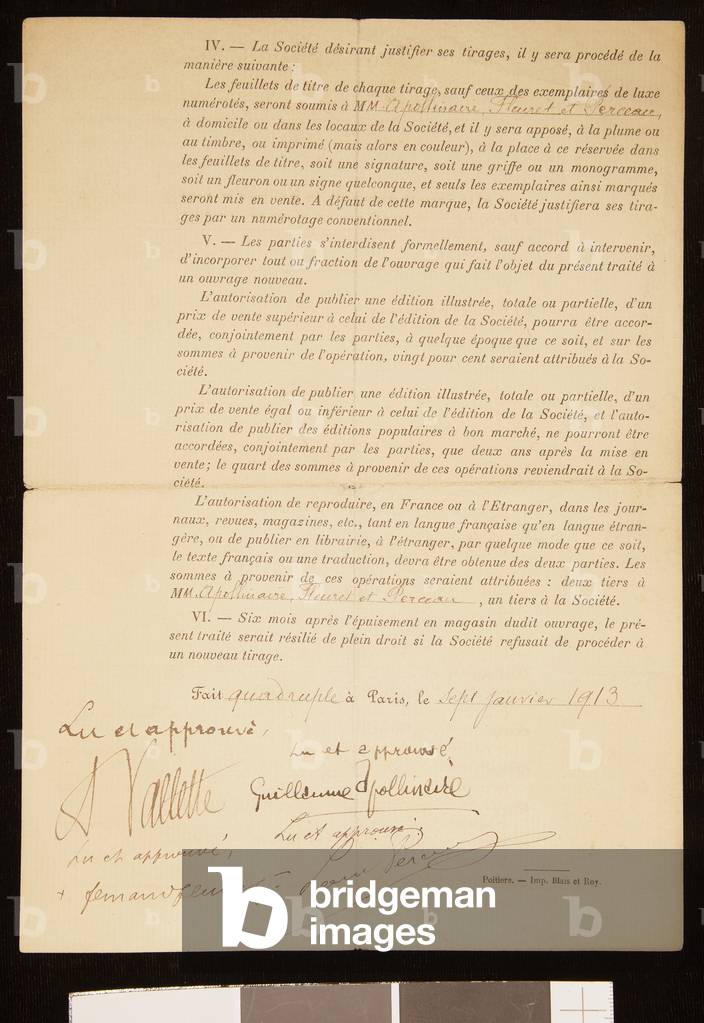 IV. — La Société désirant justifier ses tirages, il y sera procédé de la
manière suivante :
Les feuillets de titre de chaque tirage, sauf ceux des exemplaires de luxe
numérotés, seront soumis à MM. Apollinaire, Fleuret et Perceau,
à domicile ou dans les locaux de la Société, et il y sera apposé, à la plume ou
au timbre, ou imprimé (mais alors en couleur), à la place à ce réservée dans
les feuillets de titre, soit une signature, soit une griffe ou un monogramme,
soit un fleuron ou un signe quelconque, et seuls les exemplaires ainsi marqués
seront mis en vente. A défaut de cette marque, la Société justifiera ses tira-
ges par un numérotage conventionnel.
V. — Les parties s'interdisent formellement, sauf accord à intervenir,
d'incorporer tout ou fraction de l'ouvrage qui fait l'objet du présent traité à
un ouvrage nouveau.
L'autorisation de publier une édition illustrée, totale ou partielle, d'un
prix de vente supérieur à celui de l'édition de la Société, pourra être accor-
dée, conjointement par les parties, à quelque époque que ce soit, et sur les
sommes à provenir de l'opération, vingt pour cent seraient attribués à la So-
ciété.
L'autorisation de publier une édition illustrée, totale ou partielle, d'un
prix de vente égal ou inférieur à celui de l'édition de la Société, et l'auto-
risation de publier des éditions populaires à bon marché, ne pourront être
accordées, conjointement par les parties, que deux ans après la mise en
vente ; le quart des sommes à provenir de ces opérations reviendrait à la So-
ciété.
L'autorisation de reproduire, en France ou à l'Etranger, dans les jour-
naux, revues, magazines, etc., tant en langue française qu'en langue étran-
gère, ou de publier en librairie, à l'étranger, par quelque mode que ce soit,
le texte français ou une traduction, devra être obtenue des deux parties. Les
sommes à provenir de ces opérations seraient attribuées : deux tiers à
MM. Apollinaire, Fleuret et Perceau, un tiers à la Société.
VI. — Six mois après l'épuisement en magasin dudit ouvrage, le pré-
sent traité serait résilié de plein droit si la Société refusait de procéder à
un nouveau tirage.
Fait quadruple à Paris, le sept janvier 1913
Lu et approuvé,
A Vallette
Lu et approuvé
Guillaume Apollinaire
Lu et approuvé,
Lu et approuvé :
+ fernand fleuret
Louis Perceau
Poitiers. — Imp. Blais et Roy.
bridgeman
images